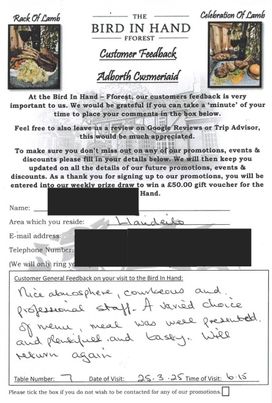 Rack Of Lamb
Celebration Of Lamb
THE
BIRD IN HAND
FFOREST
Customer Feedback
Adborth Cwsmeriaid
At the Bird In Hand – Fforest, our customers feedback is very
important to us. We would be grateful if you can take a ‘minute’ of your
time to place your comments in the box below.
Feel free to also leave us a review on Google Reviews or Trip Advisor,
this would be much appreciated.
To make sure you don't miss out on any of our promotions, events &
discounts please fill in your details below. We will then keep you
updated on all the details of our future promotions, events &
discounts. As a thank you for signing up to our promotions, you will be
entered into our weekly prize draw to win a £50.00 gift voucher for the
Hand.
Name:
Area which you reside: Llandeilo
E-mail address:
Telephone Number:
(We will only ring you
Customer General Feedback on your visit to the Bird In Hand:
Nice atmosphere, courteous and
professional staff. A varied choice
of menu, meal was well presented
and plentiful and tasty. Will
return again
Table Number: 7 Date of Visit: 25.3.25 Time of Visit: 6.15
Please tick the box if you do not wish to be contacted for any of our promotions.